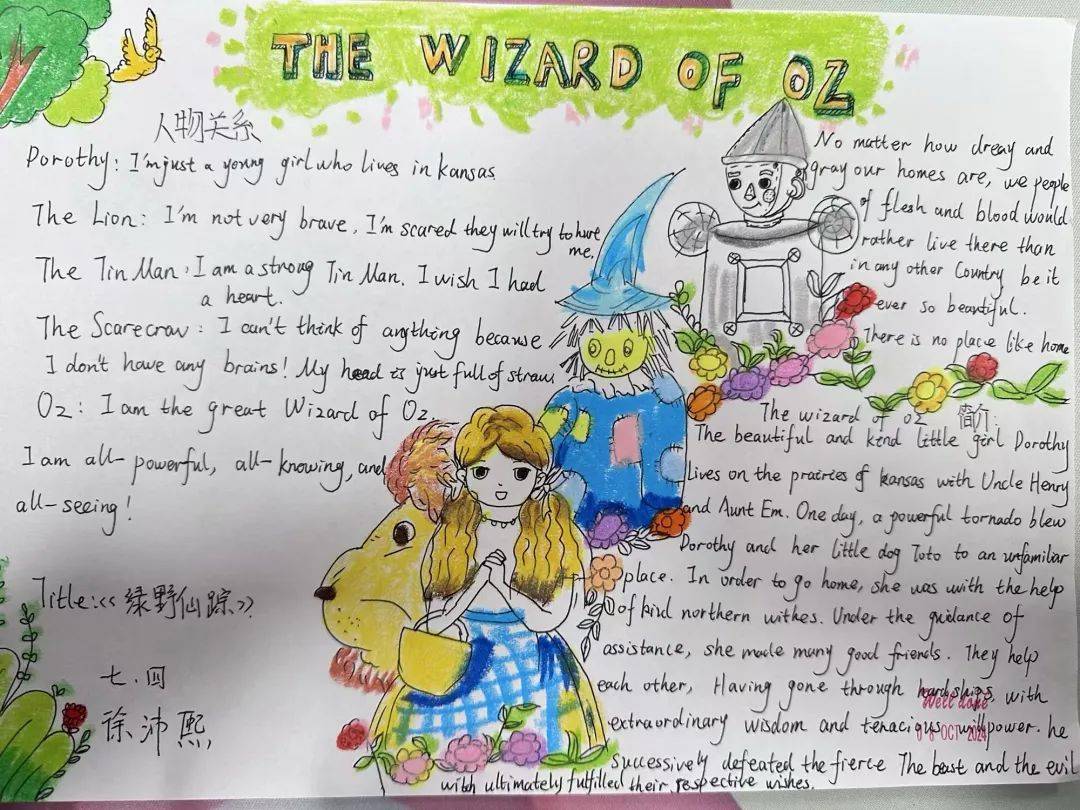 THE WIZARD OF OZ
人物关系
Dorothy: I'm just a young girl who lives in Kansas.
The Lion: I'm not very brave, I'm scared they will try to hurt
me.
The Tin Man: I am a strong Tin Man. I wish I had
a heart.
The Scarecrow: I can't think of anything because
I don't have any brains! My head is just full of straw.
Oz: I am the great Wizard of Oz.
I am all-powerful, all-knowing, and
all-seeing!
Title:《绿野仙踪》
七.四
徐沛熙
No matter how dreay and
gray our homes are, we people
of flesh and blood would
rather live there than
in any other Country be it
ever so beautiful.
There is no place like home
The wizard of oz 简介:
The beautiful and kind little girl Dorothy
Lives on the prairies of kansas with Uncle Henry
and Aunt Em. One day, a powerful tornado blew
Dorothy and her little dog Toto to an unfamiliar
place. In order to go home, she was with the help
of kind northern withes. Under the guidance of
assistance, she made many good friends. They help
each other, Having gone through hardships, with
extraordinary wisdom and tenacious willpower. he
successively defeated the fierce The beast and the evil
witch ultimately fulfilled their respective wishes.
Well done
08 OCT 2024